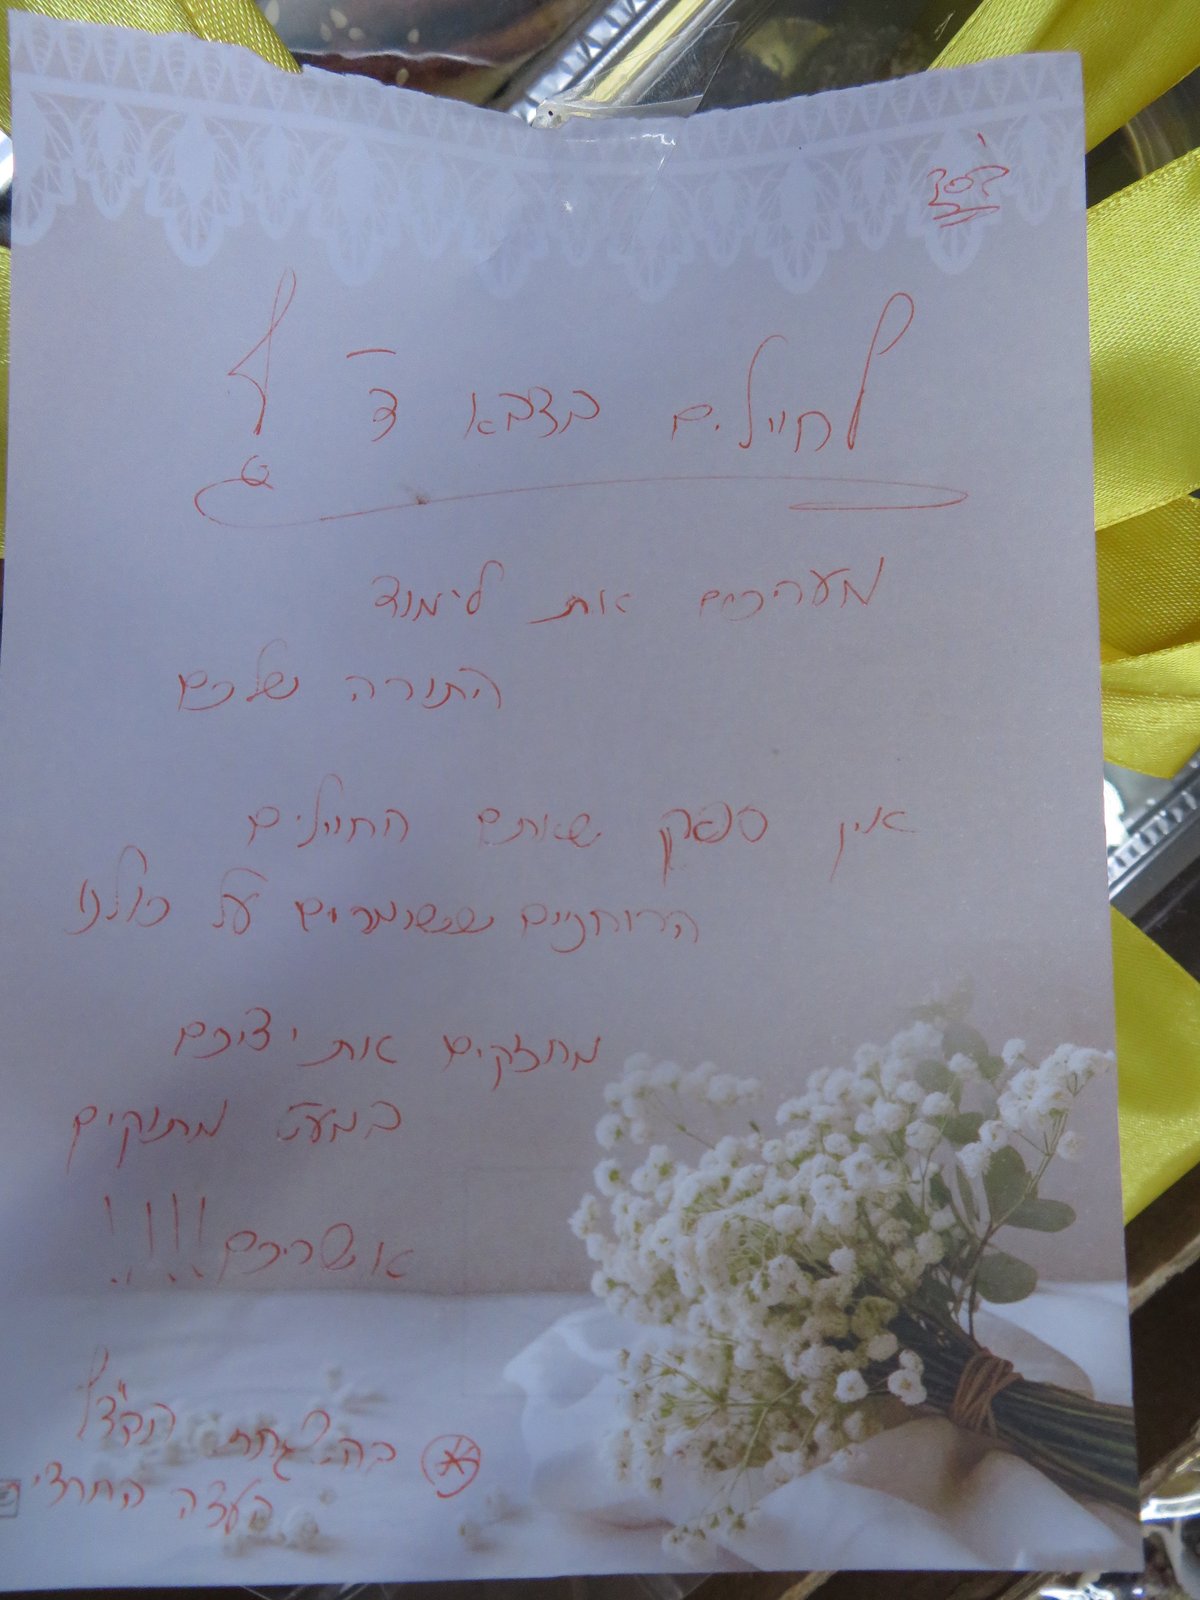 לחיילים בצבא ד'
מעריכים את לימוד
התורה שלכם
אין ספק שאתם החיילים
הרוחניים ששומרים על כולנו
מחזקים את ידיכם
במעט מתוקים
אשריכם!!!!
הבד"ץ
העדה החרדית